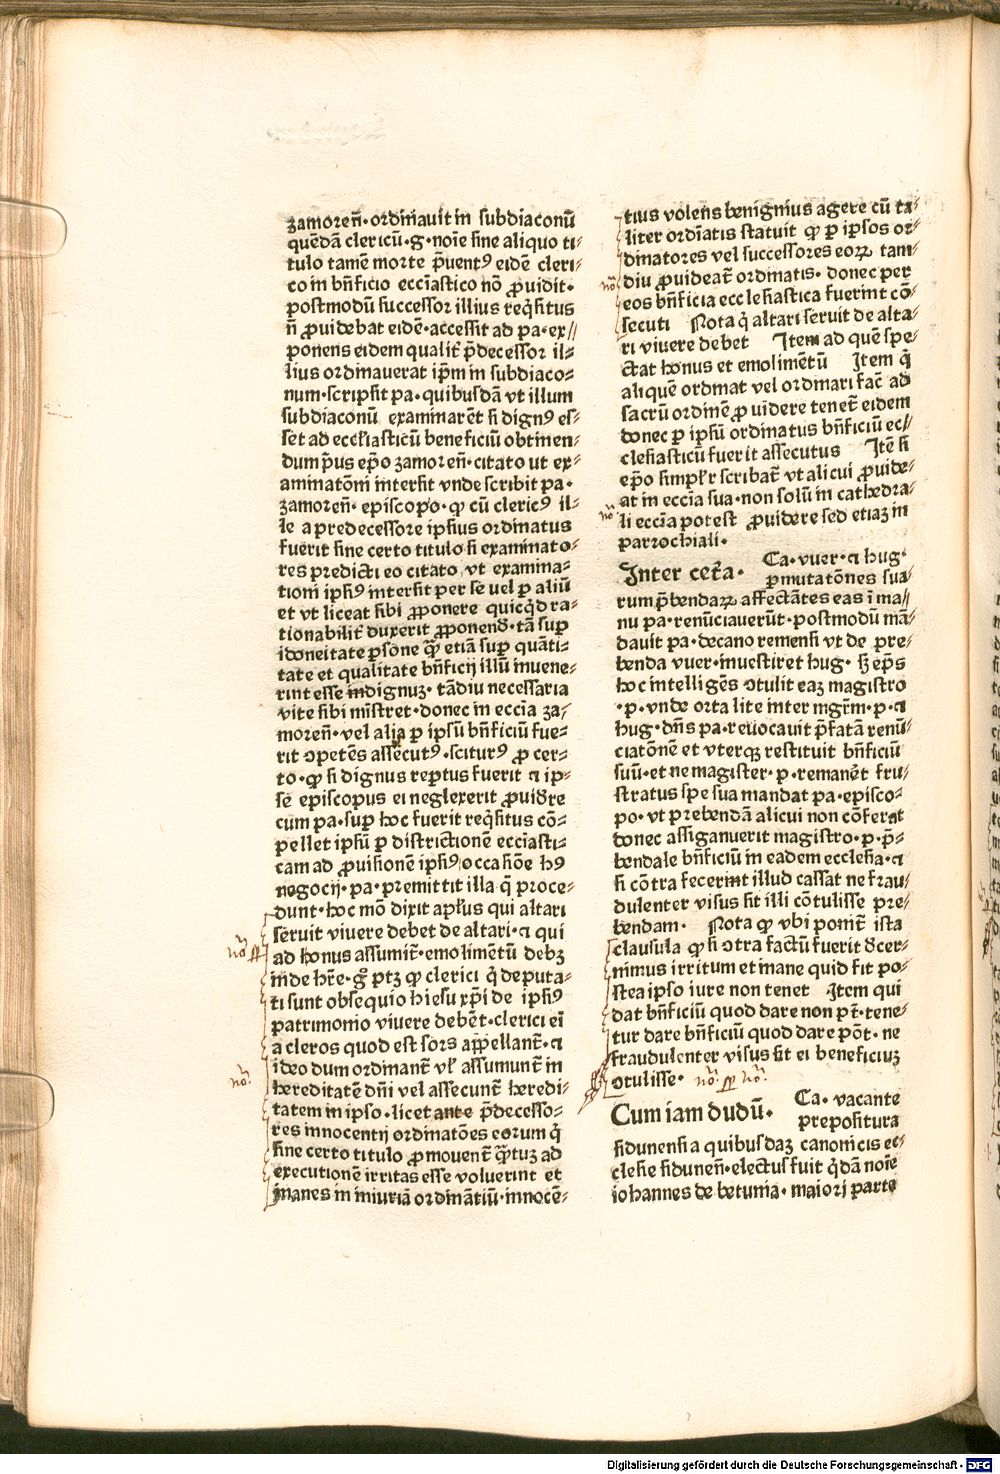 zamoreñ·ordinauit in subdiaconū
quēdā clericū·g·noīe sine aliquo ti⸗
tulo tamē morte p̄uentꝰ eidē cleri⸗
co in bn̄ficio ecc̄iastico nō ꝓuidit·
postmodū successor illius req̄situs
n̄ ꝓuidebat eidē·accessit ad pa·ex//
ponens eidem qualit̄ p̄decessor il⸗
lius ordinauerat ip̄m in subdiaco⸗
num·scripsit pa·quibusdā vt illum
subdiaconū examinarēt si dignꝰ es⸗
set ad eccl̄iasticū beneficiū obtinen⸗
dum p̄us ep̄o zamoreñ·citato ut ex⸗
aminatōni intersit vnde scribit pa·
zamoreñ·episcopo·ꝙ cū clericꝰ il⸗
le a predecessore ipsius ordinatus
fuerit sine certo titulo si examinato⸗
res predicti eo citato vt examina⸗
tioni ipsiꝰ intersit per se uel ꝑ aliū
et vt liceat sibi ꝓponere quicq̄d ra⸗
tionabilit̄ duxerit ꝓponend̄·tā suꝑ
idoneitate ꝑsone qͣꝫ etiā suꝑ quāti⸗
tate et qualitate bn̄ficij illū inuene⸗
rint esse indignuꝫ·tādiu necessaria
vite sibi mīstret·donec in ecc̄ia za⸗
moreñ·vel alia ꝑ ipsū bn̄ficiū fue⸗
rit ꝯpetēs assecutꝰ·sciturꝰ ꝓ cer⸗
to·ꝙ si dignus rep̄tus fuerit ⁊ ip⸗
se episcopus ei neglexerit ꝓuid̄re
cum pa·suꝑ hoc fuerit req̄situs cō⸗
pellet ipsū ꝑ districtionē ecc̄iasti⸗
cam ad ꝓuisionē ipsiꝰ occasiōe hꝰ
negocij·pa·premittit illa q̄ proce⸗
dunt·hoc mō dixit apl̄us qui altari
seruit viuere debet de altari·⁊ qui
ad honus assumit̄·emolimētū debꝫ
inde hr̄e·g̊ ptꝫ ꝙ clerici q̄ deputa⸗
ti sunt obsequio hiesu xp̄i de ipsiꝰ
patrimonio viuere debēt·clerici eī
a cleros quod est sors app̄ellant̄·⁊
ideo dum ordinant̄ vl̄ assumunt̄ in
hereditatē dn̄i vel assecunt̄ heredi⸗
tatem in ipso·licet ante p̄decesso⸗
res innocentij ordinatōes eorum q̄
sine certo titulo ꝓmouent̄ qͣꝫtuꝫ ad
executionē irritas esse voluerint et
inanes in iniuriā ordinātiū·innocē⸗
tius volens benignius agere cū ta⸗
liter ordīatis statuit ꝙ ꝑ ipsos or⸗
dinatores vel successores eoꝝ tam⸗
diu ꝓuideat̄ ordinatis·donec per
eos bn̄ficia ecclesiastica fuerint cō⸗
secuti Nota q̄ altari seruit de alta⸗
ri viuere debet Item ad quē spe⸗
ctat honus et emolimētū Item q̄
aliquē ordinat vel ordinari fac̄ ad
sacrū ordinē ꝓuidere tenet̄ eidem
donec ꝑ ipsū ordinatus bn̄ficiū ec⸗
clesiasticū fuerit assecutus Itē si
ep̄o simpl̄r scribat̄ vt alicui ꝓuide⸗
at in ecc̄ia sua·non solū in cathedra⸗
li ecc̄ia potest ꝓuidere sed etiaꝫ in
parrochiali·
Inter cet̄a· Ca·vuer·⁊ hug·
ꝑmutatōnes sua⸗
rum p̄bendaꝝ affectātes eas ī ma//
nu pa·renūciauerūt·postmodū mā⸗
dauit pa·decano remensi vt de pre⸗
benda vuer·inuestiret hug· sꝫ ep̄s
hoc intelligēs ꝯtulit eaꝫ magistro
·p·vnde orta lite inter mgr̄m·p·⁊
hug·dn̄s pa·reuocauit p̄fatā renū⸗
ciatōnē et vterqꝫ restituit bn̄ficiū
suū·et ne magister·p·remanēt fru⸗
stratus spe sua mandat pa·episco⸗
po·vt prebendā alicui non cōferat
donec assiganuerit magistro·p·p̄⸗
bendale bn̄ficiū in eadem ecclesia·⁊
si cōtra fecerint illud cassat ne frau⸗
dulenter visus sit illi cōtulisse pre⸗
bendam· Nota ꝙ vbi ponit̄ ista
clausula ꝙ si ꝯtra factū fuerit d̄cer⸗
nimus irritum et inane quid fit po⸗
stea ipso iure non tenet Item qui
dat bn̄ficiū quod dare non pt̄·tene⸗
tur dare bn̄ficiū quod dare pōt·ne
fraudulenter visus sit ei beneficiuꝫ
ꝯtulisse·
Cum iam dudū· Ca·vacante
prepositura
sidunensi a quibusdaꝫ canonicis ec⸗
clesie siduneñ·electus fuit q̄dā noīe
iohannes de betunia·maiori parte
Digitalisierung gefördert durch die Deutsche Forschungsgemeinschaft - DFG